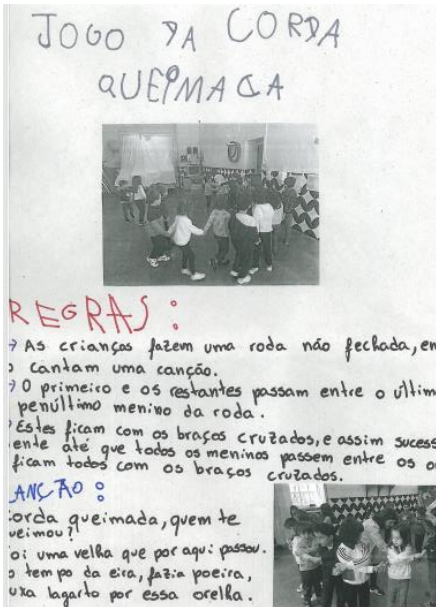 JOGO DA CORDA
QUEIMADA
REGRAS:
→ As crianças fazem uma roda não fechada, en
cantam uma canção.
→ O primeiro e os restantes passam entre o últim
penúltimo menino da roda.
Estes ficam com os braços cruzados, e assim sucess
ente até que todos os meninos passem entre os o
ficam todos com os braços cruzados.
ANÇÃO:
orda queimada, quem te
ueimou?
oi uma velha que por aqui passou.
o tempo da eira, fazia poeira,
uxa lagarto por essa orelha.